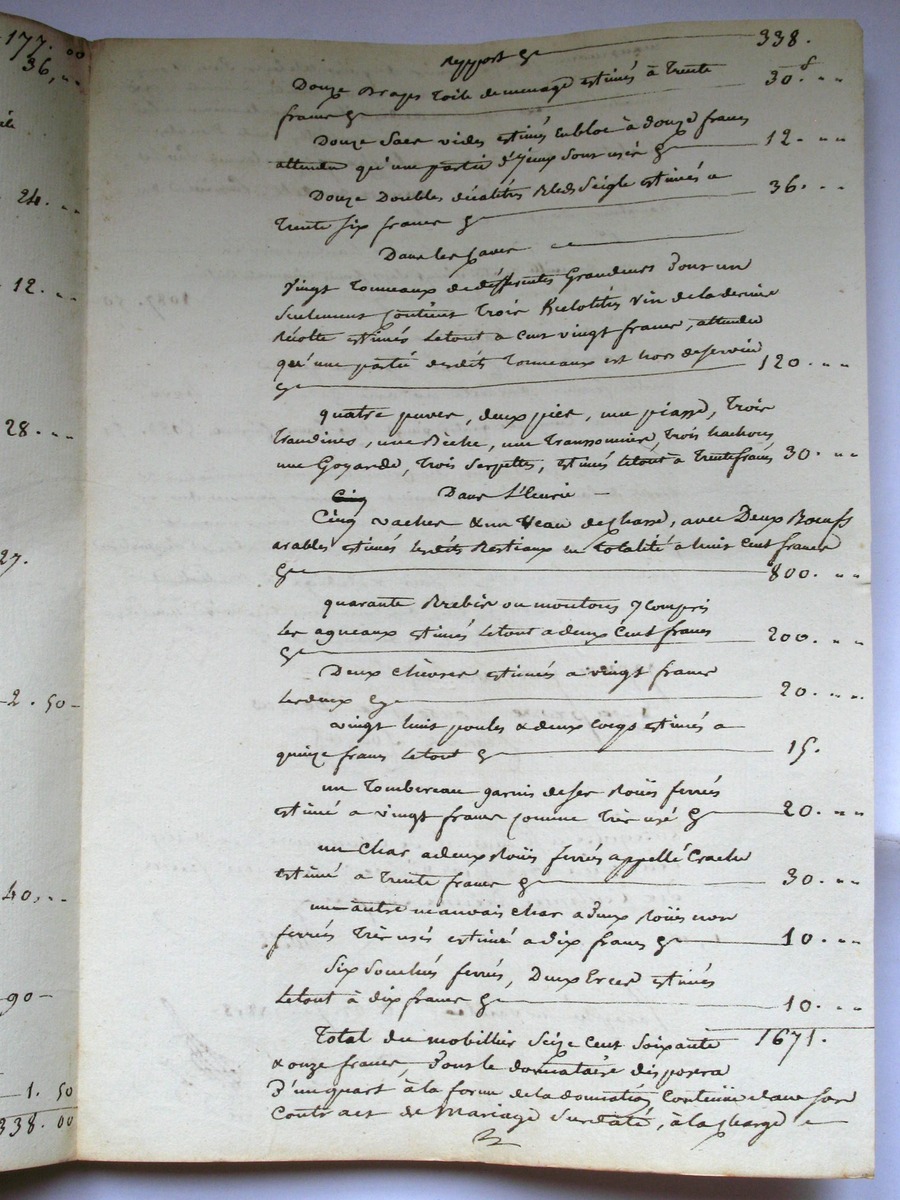 177. 00
36, ,,
24. ,,
12. ,,
28. ,,
27.
2. 50
40, ,,
90
1. 50
338. 00
rapport 338.
Douze draps toile de menage estimés à trente
francs 30 f ,,
Douze sacs vides estimés en bloc à douze francs
attendu qu'une partie d'yceux sont usés 12. ,,
Douze Doubles décalitres Bled Seigle estimés a
trente six francs 36. ,,
Dans les caves
Vingt tonneaux de différentes Grandeurs dont un
seulement contient trois hectolitres vin de la derniere
Récolte estimés le tout a cent vingt francs, attendu
qu'une partie desdits tonneaux est hors de service
120. ,,
quatre cuves, deux pics, une piasse, trois
une Bèche, une trois hachons,
une Goyarde, trois Serpettes, estimés le tout a trente francs 30. ,,
Cinq Dans l'écurie
Cinq vaches & un veau de chasse, avec Deux Boeufs
arables estimés lesdits Bestiaux en totalité a huit cent francs
800. ,,
quarante Brebis ou moutons y compris
les agneaux estimés le tout a deux cent francs
200. ,,
Deux chèvres estimés a vingt francs
les deux 20. ,,
vingt huit poules & deux coqs estimés a
quinze francs le tout 15.
un Tombereau garnis de ses Roües ferrées
estimé a vingt francs comme très usé 20. ,,
un Char a deux Roües ferrés appellé
estimé a trente francs 30. ,,
un autre mauvais char a deux Roües non
ferrées très usés estimé a dix francs 10. ,,
Six ferrés, Deux estimés
le tout à dix francs 10. ,,
Total du mobillier Seize cent soixante 1671.
& onze francs, dont le donnataire disposera
d'un quart, à la forme de la donnation contenüe dans son
Contract de Mariage Susdaté, à la charge